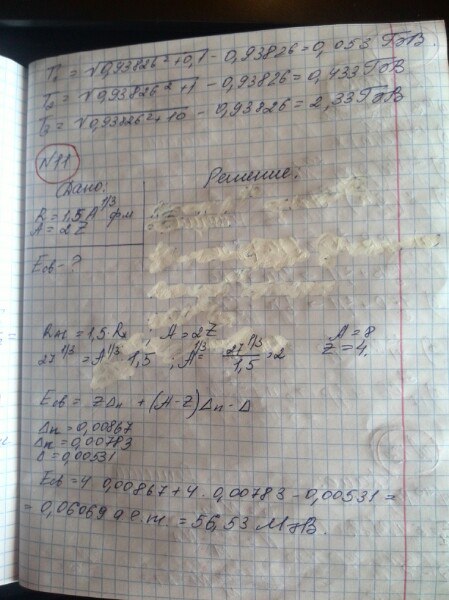 T₁ = √0,93826² + 0,1 - 0,93826 = 0,053 ГэВ.
T₂ = √0,93826² + 1 - 0,93826 = 0,433 ГэВ
T₃ = √0,93826² + 10 - 0,93826 = 2,33 ГэВ
N 11
Дано: Решение:
R = 1,5 A^1/3 фм
A = 2Z
Eсв - ?
= 1,5 · Rx ; A = 2Z A = 8
27^1/3 = A^1/3 1,5 ; A^1/3 = 27^1/3 / 1,5 = 2 Z = 4.
Eсв = ZΔn + (A-Z)Δn - Δ
Δn = 0,00867
Δn = 0,00783
Δ = 0,00531
Eсв = 4 0,00867 + 4 · 0,00783 - 0,00531 =
= 0,06069 а.е.м. = 56,53 МэВ.